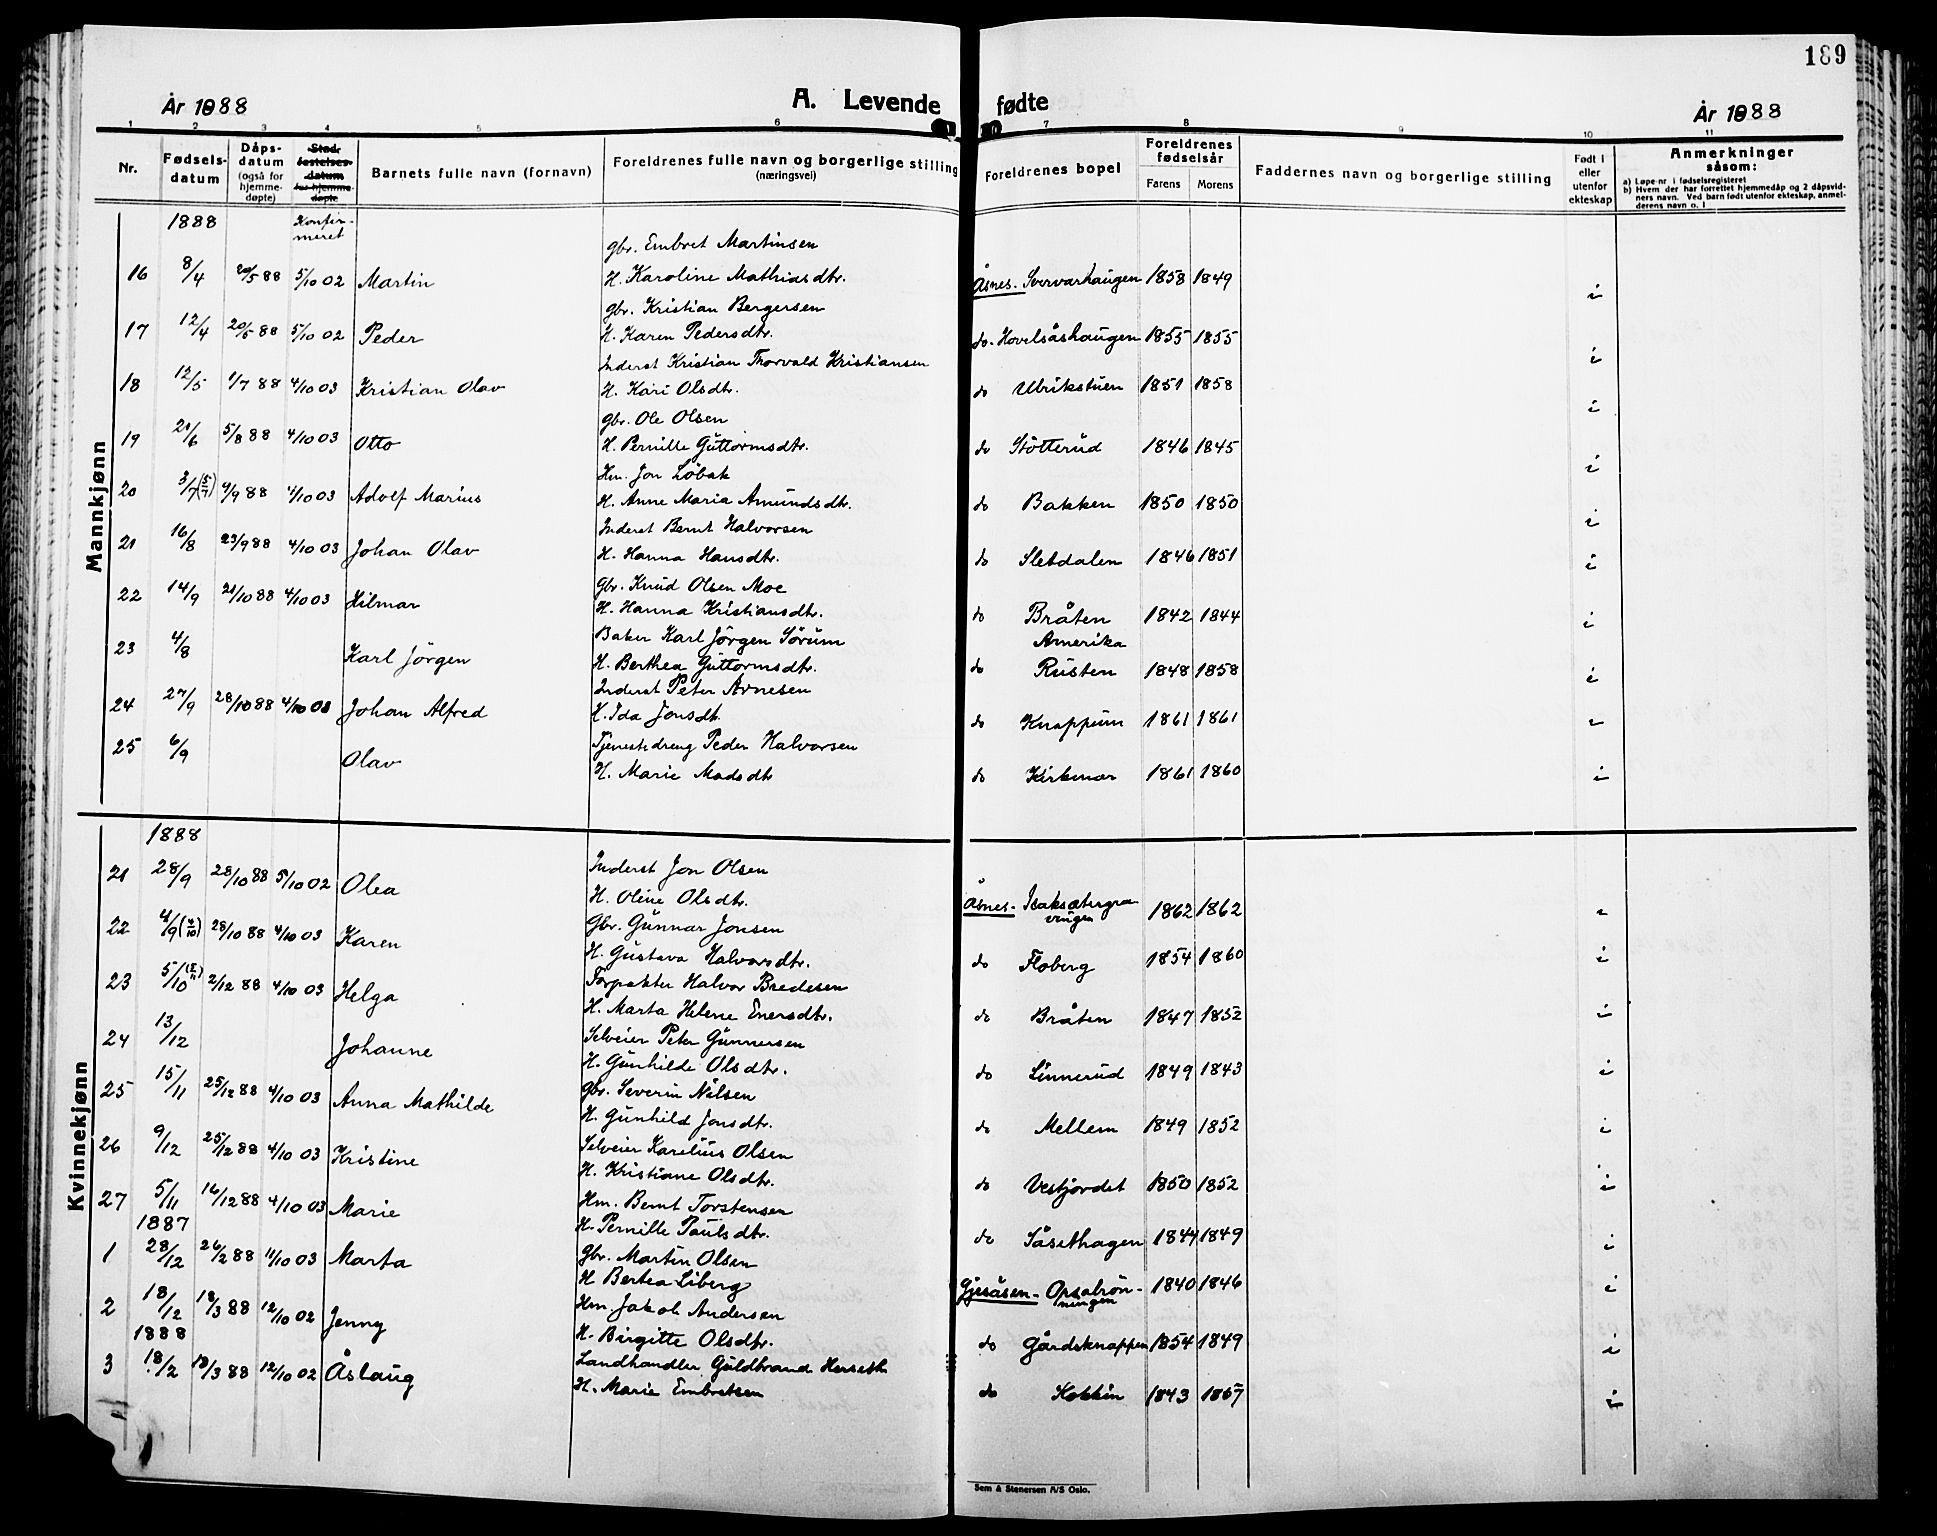 189
År 1888
A. Levende fødte
År 1888
1 2 3 4 5 6 7 8 9 10 11
Nr.
Fødsels-datum
Dåps-datum (også for hjemme-døpte)
Stad-festelses-datum for hjemme-døpte
Barnets fulle navn (fornavn)
Foreldrenes fulle navn og borgerlige stilling (næringsvei)
Foreldrenes bopel
Foreldrenes fødselsår
Farens Morens
Faddernes navn og borgerlige stilling
Født i eller utenfor ekteskap
Anmerkninger såsom:
a) Løpe-nr i fødselsregisteret
b) Hvem der har forrettet hjemmedåp og 2 dåpsvid-
ners navn. Ved barn født utenfor ekteskap, anmel-
derens navn o. l
Mannkjønn
1888 Konfir-meret
gbr. Embret Martinsen
16 8/4 20/5 88 5/10 02 Martin H. Karoline Mathiasdtr. Åsnes. Sorvarhaugen 1858 1849 i
gbr. Kristian Bergersen
17 12/4 20/5 88 5/10 02 Peder H. Karen Pedersdtr. do. Hovelsåshaugen 1855 1855 i
Inderst Kristian Thorvald Kristiansen
18 12/5 1/7 88 4/10 03 Kristian Olav H. Kari Olsdtr. do Ulrikstuen 1851 1858 i
gbr. Ole Olsen
19 21/6 5/8 88 4/10 03 Otto H. Pernille Guttormsdtr. do Støtterud 1846 1845 i
Hm. Jon Løbak
20 3/7 (5/7) 9/9 88 4/10 03 Adolf Marius H. Anne Maria Amundsdtr. do Bakken 1850 1850 i
Inderst Bernt Halvorsen
21 16/8 23/9 88 4/10 03 Johan Olav H. Hanna Hansdtr. do Sletdalen 1846 1851 i
gbr. Knud Olsen Moe
22 14/9 21/10 88 4/10 03 Hilmar H. Hanna Kristiansdtr. do Bråten 1842 1844 i
Baker Karl Jörgen Sörum Amerika
23 4/8 Karl Jörgen H. Berthea Guttormsdtr. do Rusten 1848 1858 i
Inderst Peter Arnesen
24 27/9 28/10 88 4/10 03 Johan Alfred H. Ida Jonsdt. do Knappum 1861 1861 i
Tjenestedreng Peder Halvorsen
25 6/9 Olav H. Marie Madsdtr do Kirkmor 1861 1860 i
Kvinnekjønn
1888
Inderst Jon Olsen
21 28/9 28/10 88 5/10 02 Olea H. Oline Olsdtr. Åsnes. Isaksætergravingen 1862 1862 i
Gbr. Gunnar Jonsen
22 4/9 (4/10) 28/10 88 4/10 03 Karen H. Gustava Halvorsdtr. do Floberg 1854 1860 i
Forpakter Halvor Bredesen
23 5/10 2/12 88 4/10 03 Helga H. Marta Helene Enersdtr. do Bråten 1847 1852 i
Selveier Peter Gunnersen
24 13/12 Johanne H. Gunhilde Olsdtr. do Linnerud 1849 1843 i
gbr. Severin Nilsen
25 15/11 25/12 88 4/10 03 Anna Mathilde H. Gunhild Jonsdtr. do Mellem 1849 1852 i
Selveier Karelius Olsen
26 9/12 25/12 88 4/10 03 Kristine H. Kristiane Olsdtr. do Vestjordet 1850 1852 i
Hm. Bernt Torstensen
27 5/11 16/12 88 4/10 03 Marie H. Pernille Paulsdtr. do Såsethagen 1844 1849 i
1887
gbr. Martin Olsen
1 28/12 26/2 88 11/10 03 Marta H Bertea Liberg Gjesåsen - Opsalrönningen 1840 1846 i
Hm. Jakob Andersen
2 18/12 18/3 88 12/10 02 Jenny H. Birgitte Olsdtr. do Gårdsknappen 1854 1849 i
1888
Landhandler Guldbrand Herseth
3 18/2 18/3 88 12/10 02 Åslaug H. Marie Embretsen do Kokkin 1843 1857 i
Sem & Stenersen A/S Oslo.